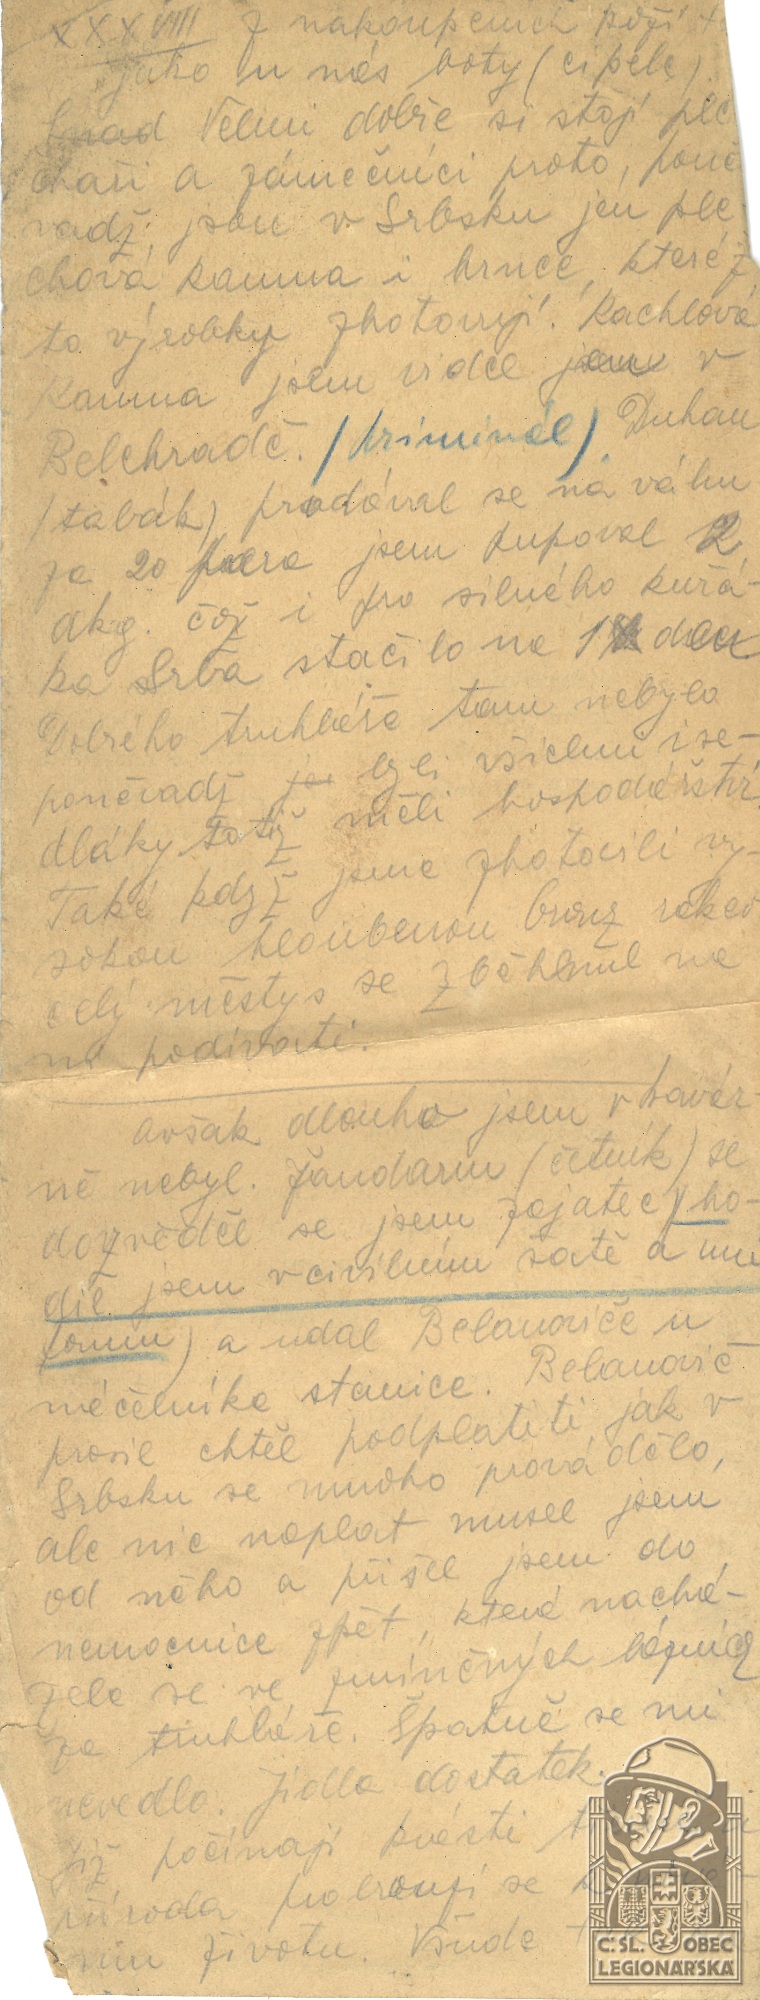 XXXVIII z nakoupených koží
jako u nás boty (cipele).
Snad Velmi dobře si stojí ple-
chaři a zámečníci proto, poně
vadž, jsou v Srbsku jen ple-
chová kamna i hrnce, které ž
to výrobky zhotovují. Kachlová
kamna jsem viděl jen v
Belehradě. (kriminál). Duhan
(tabák) prodával se na váhu
za 20 para jsem kupoval 2
dkg. což i pro silného kuřá-
ka Srba stačilo na 1 den
Dobrého truhláře tam nebylo
poněvadž byli všichni i se-
dláky totiž měli hospodářství.
Také když jsme zhotovili vy-
sokou hloubenou rakev
celý městys se zběhnul na
ní podívati.
Avšak dlouho jsem v kavár-
ně nebyl. Žandarm (četník) se
dozvěděl se jsem zajatec, (ho-
dil jsem v civilním šatě a uni
formu) a udal Belanoviče u
náčelníka stanice. Belanovič
prosil chtěl podplatiti, jak v
Srbsku se mnoho provádělo,
ale nic naplat musel jsem
od něho a přišel jsem do
nemocnice zpět, která nachá-
zela se ve zmíněných lázních
za truhláře. Špatně se mi
nevedlo. Jídla dostatek.
Již počínají kvésti
příroda probouzí se
ním životu. Všude
Č: SL. OBEC
LEGIONÁŘSKÁ